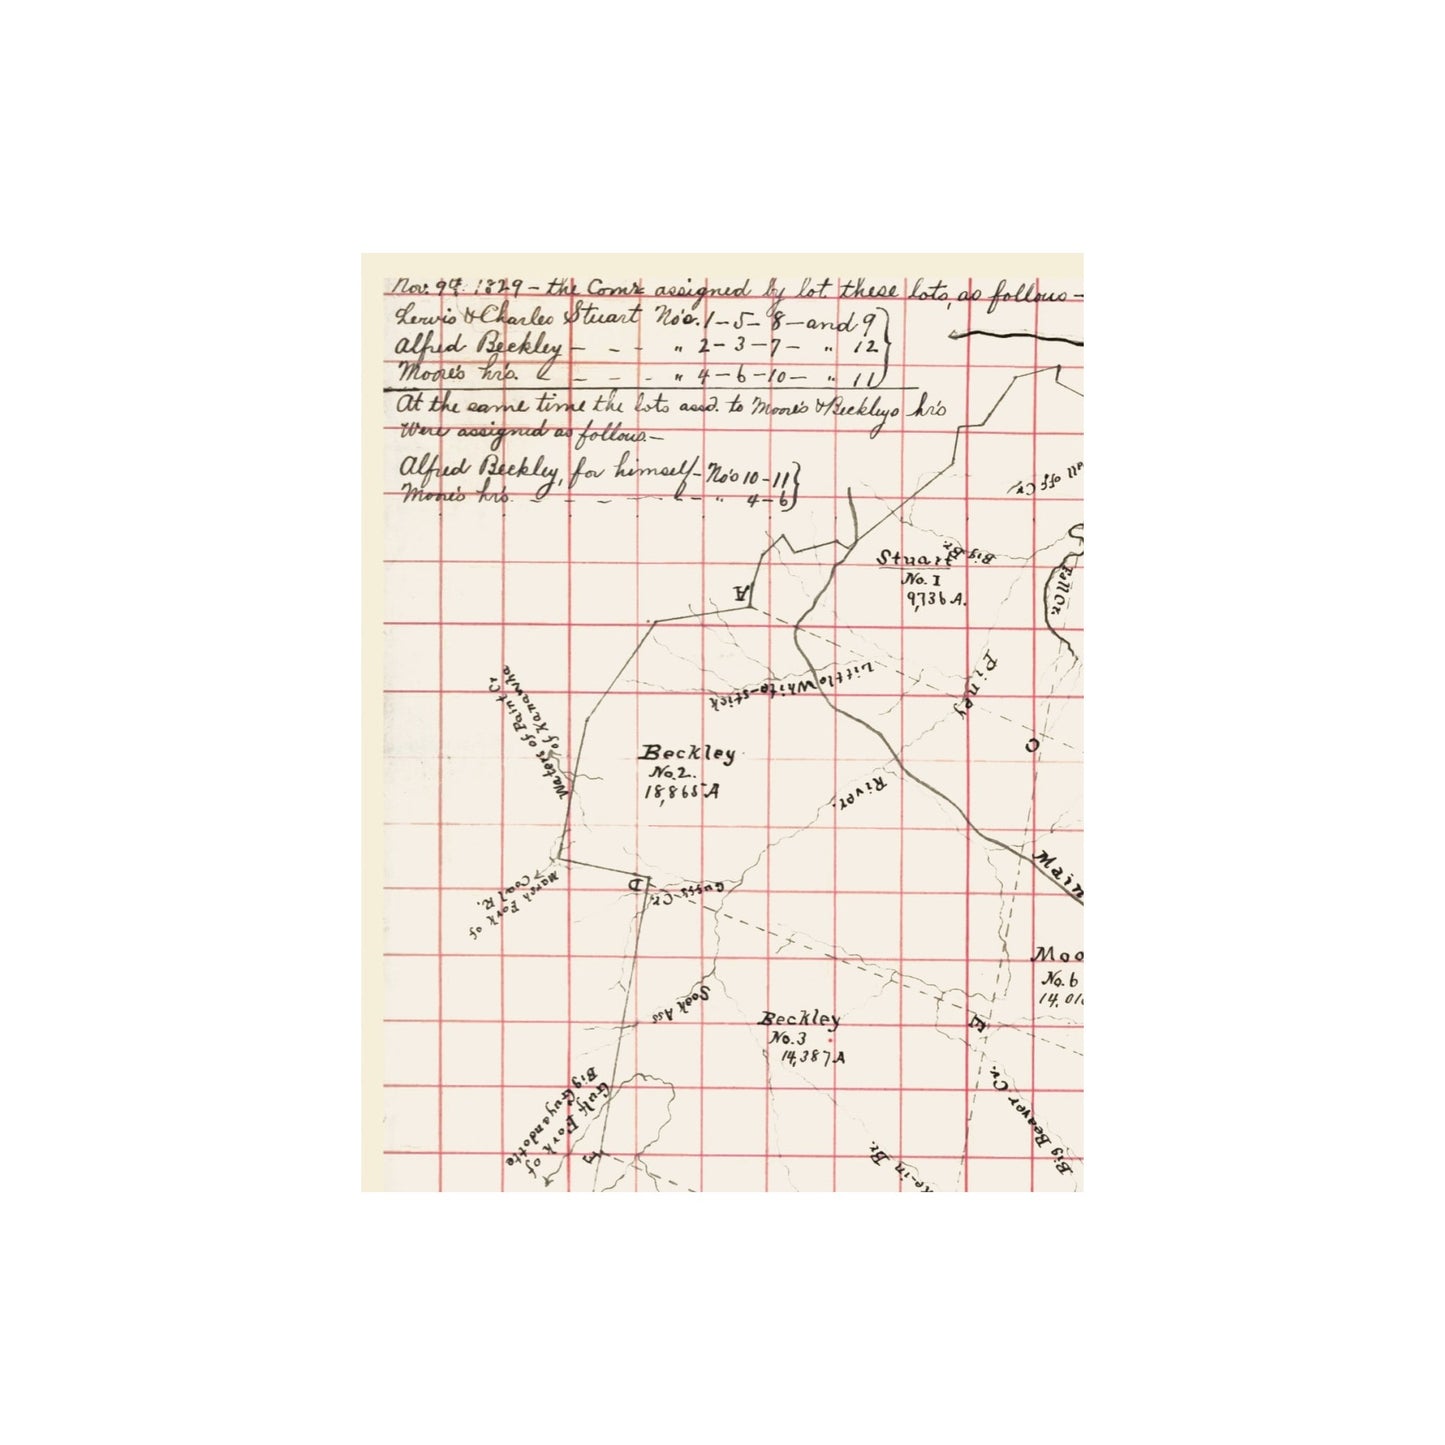 Nov. 9th. 1829 – the Comrs assigned by lot these lots, as follows –
Lewis & Charles Stuart No's. 1 – 5 – 8 – and 9
Alfred Beckley – – – " 2 – 3 – 7 – " 12
Moore's hrs. – – – – " 4 – 6 – 10 – " 11
At the same time the lots assd. to Moore's & Beckleys hrs
Were assigned as follows –
Alfred Beckley, for himself – No's 10 – 11
Moore's hrs. – – – – – – " 4 – 6
all off Cr.
Stuart
No. 1
9,736 A.
Big Br.
Fall Cr.
A
Piney
Little White-stick
Waters of Paint Cr
of Kanawha
C
Beckley
No. 2.
18,865 A
River.
Main
Marsh Fork of
Coal R.
D
Guss's Cr.
Moo
No. 6
14,01
Sook Ass
Beckley
No. 3
14,387 A
E
Big Beaver Cr.
Gulf Fork of
Big Guyandotte
ke-in Br.